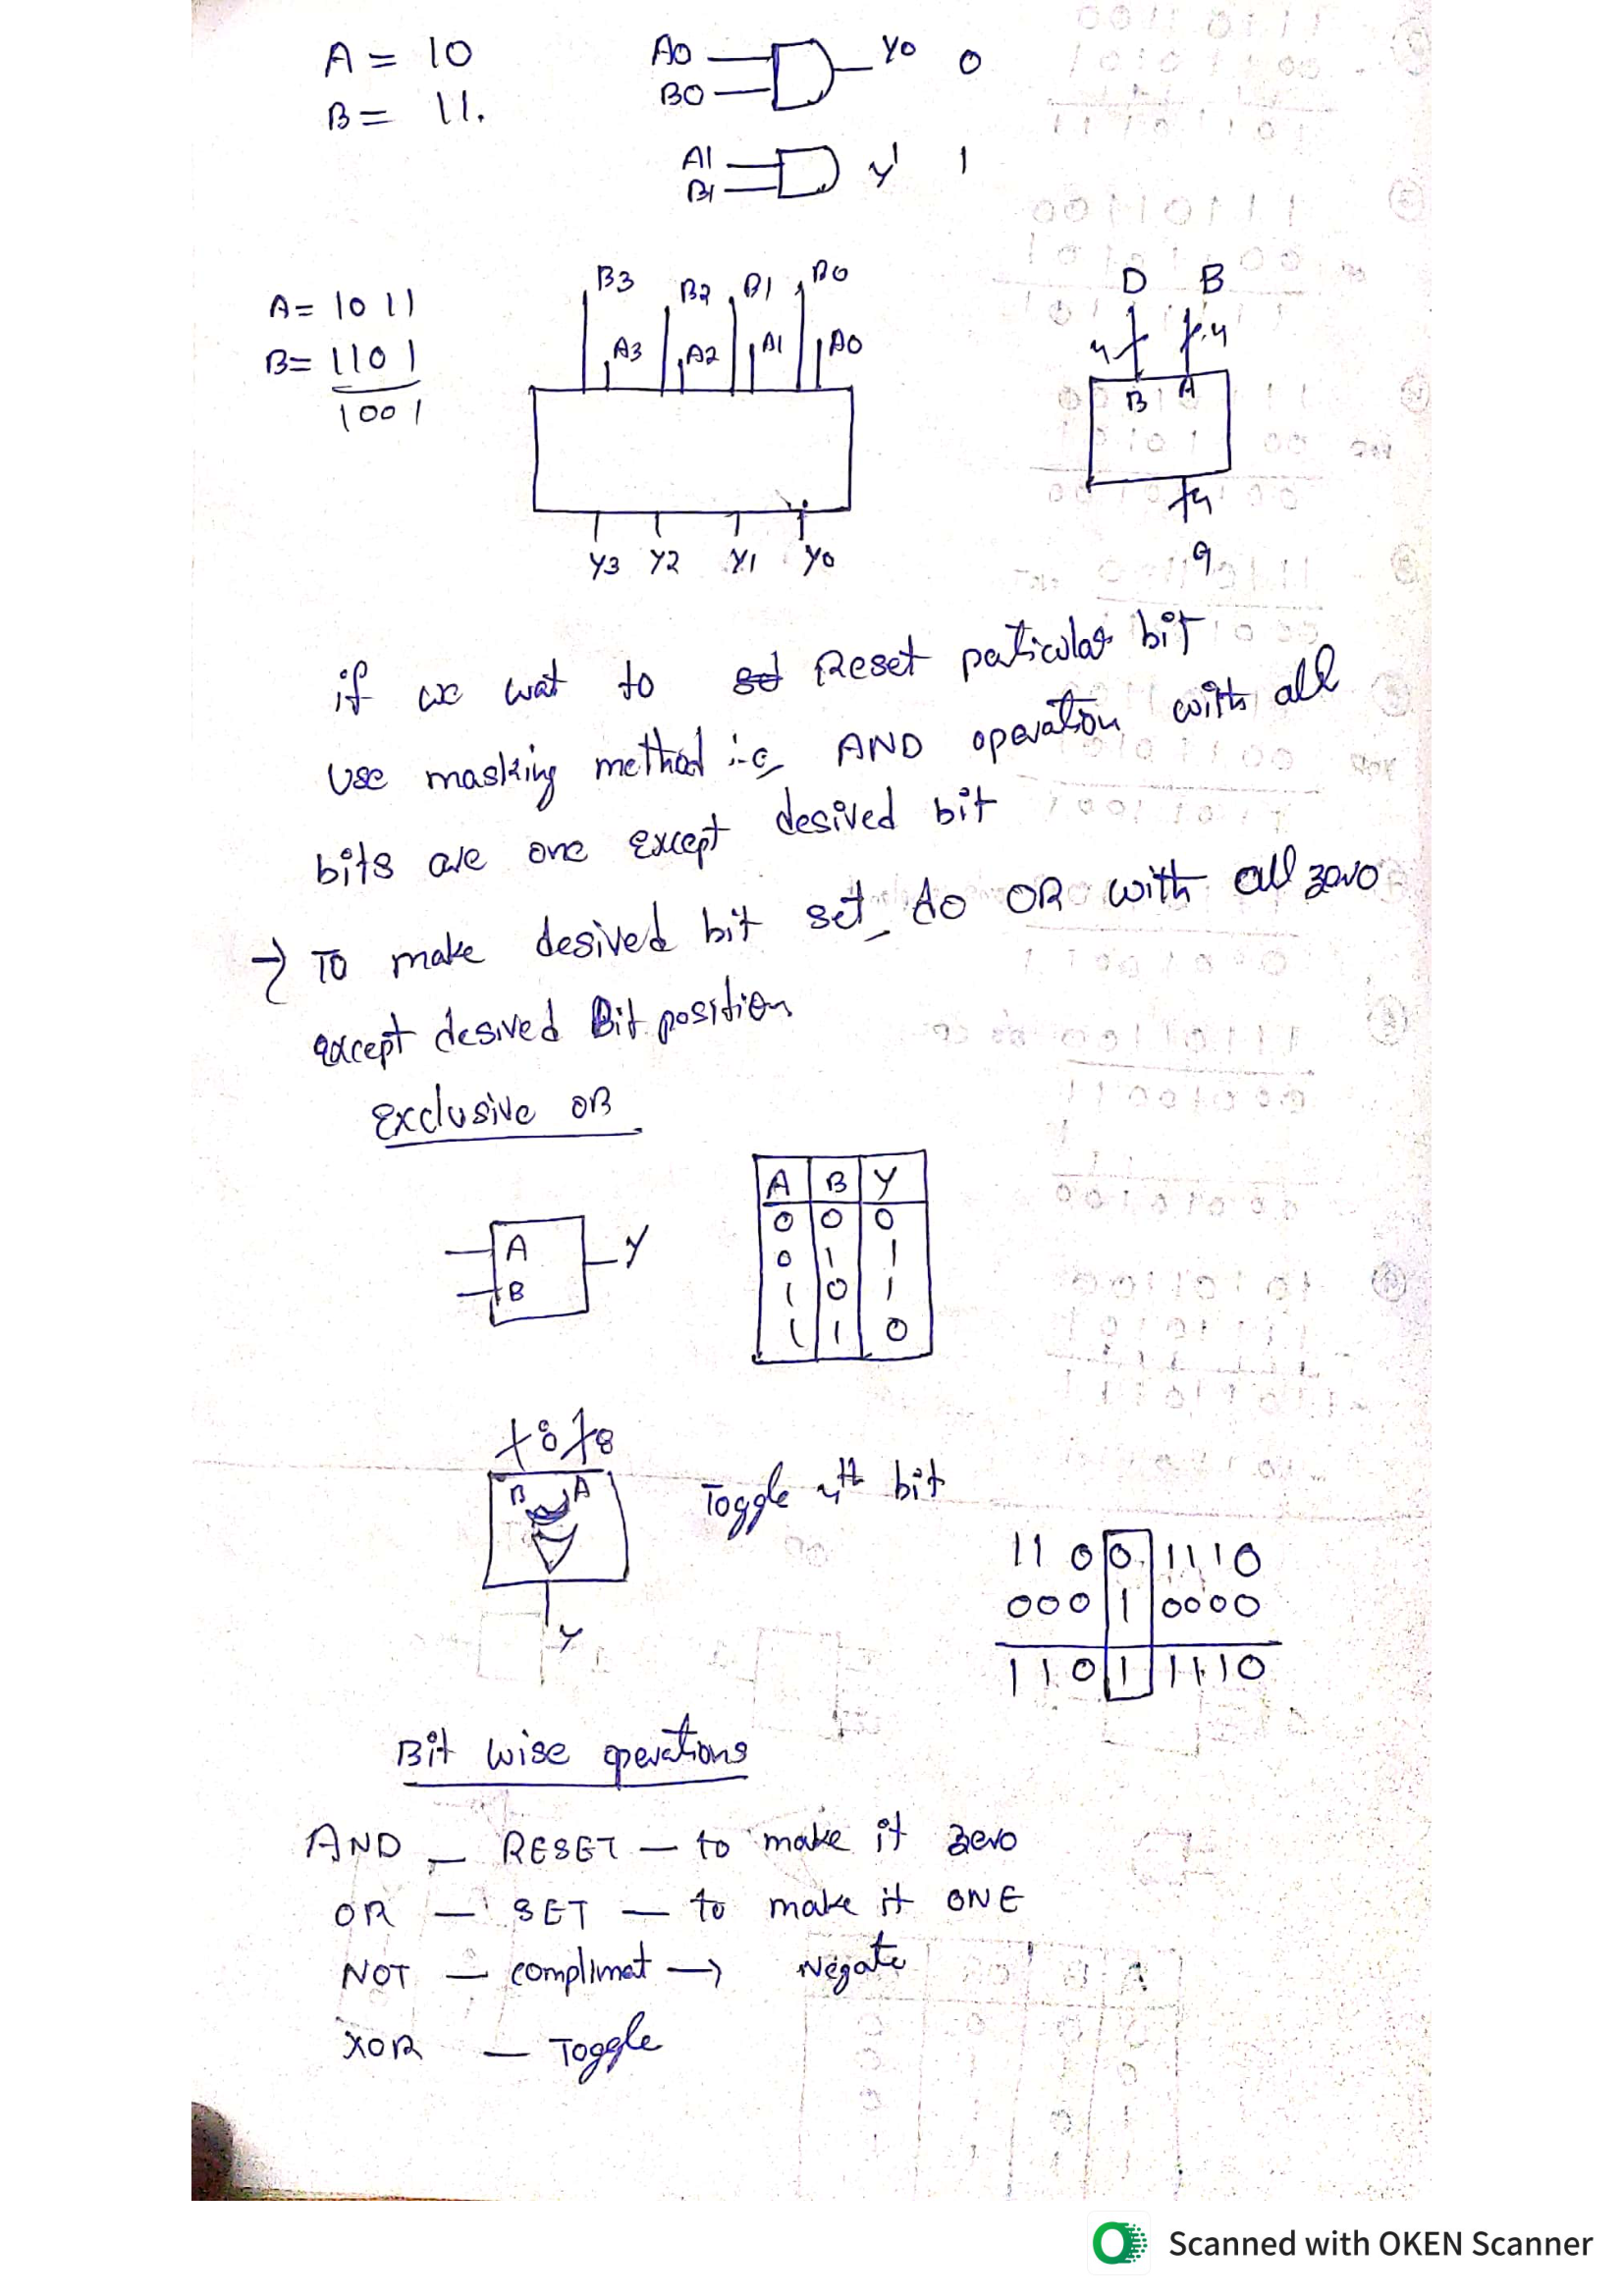 A = 10
B = 11.
A0
B0
Y0 0
A1
B1
Y1 1
A = 1011
B = 1101
1001
B3 B2 B1 B0
A3 A2 A1 A0
Y3 Y2 Y1 Y0
D B
4 4
B A
4
if we wat to Reset particular bit
use masking method i.e AND operation with all
bits are one except desired bit
→ To make desired bit set do OR with all zero
except desired Bit position
Exclusive OR
A
B
Y
A B Y
0 0 0
0 1 1
1 0 1
1 1 0
8 8
B A
Y
Toggle 4th bit
11 0 0 1110
000 1 0000
110 1 1110
Bit wise operations
AND – RESET – to make it zero
OR – SET – to make it ONE
NOT – complimat → Negate
XOR – Toggle
Scanned with OKEN Scanner